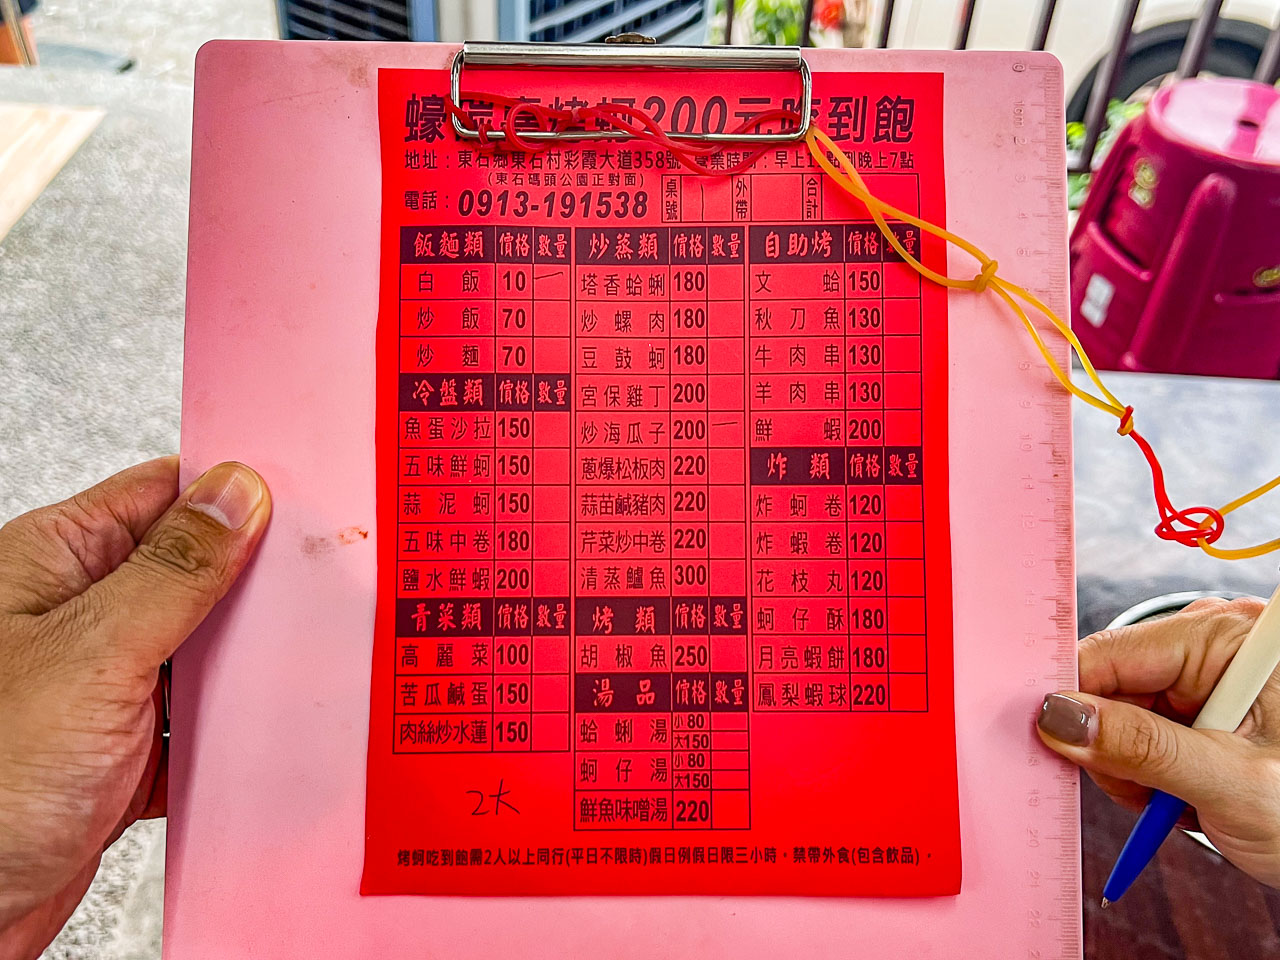 蠔 烤蚵200元吃到飽
地址：東石鄉東石村彩霞大道358號 營業時間：早上1 點到晚上7點
(東石碼頭公園正對面)
電話：0913-191538 桌號 外帶 合計
飯麵類 價格 數量
白飯 10 一
炒飯 70
炒麵 70
冷盤類 價格 數量
魚蛋沙拉 150
五味鮮蚵 150
蒜泥蚵 150
五味中卷 180
鹽水鮮蝦 200
青菜類 價格 數量
高麗菜 100
苦瓜鹹蛋 150
肉絲炒水蓮 150
2大
炒蒸類 價格 數量
塔香蛤蜊 180
炒螺肉 180
豆鼓蚵 180
宮保雞丁 200
炒海瓜子 200 一
蔥爆松板肉 220
蒜苗鹹豬肉 220
芹菜炒中卷 220
清蒸鱸魚 300
烤類 價格 數量
胡椒魚 250
湯品 價格 數量
蛤蜊湯 小80
大150
蚵仔湯 小80
大150
鮮魚味噌湯 220
自助烤 價格 數量
文蛤 150
秋刀魚 130
牛肉串 130
羊肉串 130
鮮蝦 200
炸類 價格 數量
炸蚵卷 120
炸蝦卷 120
花枝丸 120
蚵仔酥 180
月亮蝦餅 180
鳳梨蝦球 220
烤蚵吃到飽需2人以上同行(平日不限時)假日例假日限三小時。禁帶外食(包含飲品)。